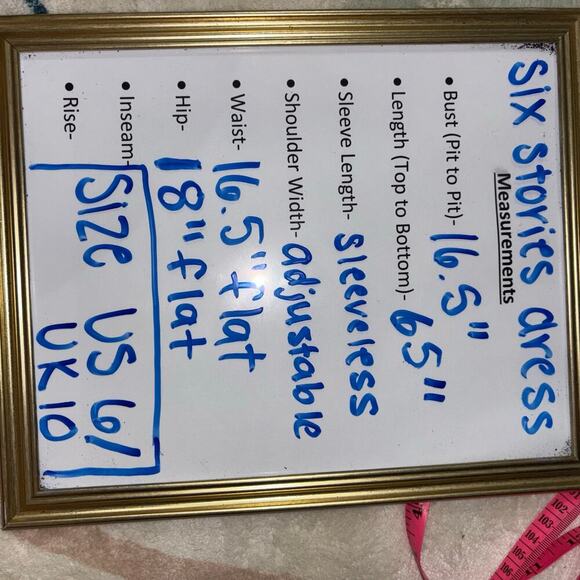 Six Stories dress
Measurements
• Bust (Pit to Pit)- 16.5"
• Length (Top to Bottom)- 65"
• Sleeve Length- Sleeveless
• Shoulder Width- adjustable
• Waist- 16.5" flat
• Hip- 18" flat
• Inseam-
• Rise-
Size US 6/
UK 10
102
103
104
105
106